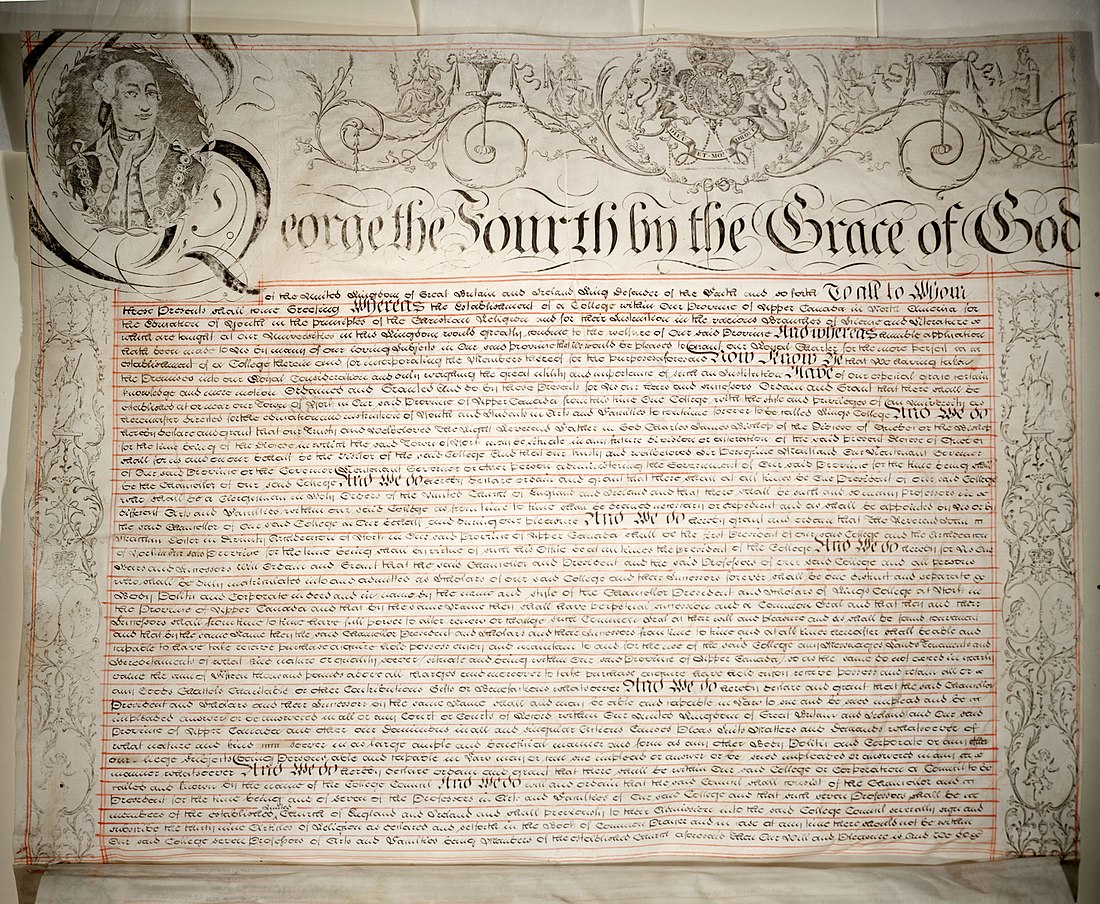 DIEU ET MON DROIT
George the Fourth by the Grace of God
of the United Kingdom of Great Britain and Ireland King Defender of the Faith and so forth To all to Whom
these Presents shall come Greeting Whereas the Establishment of a College within Our Province of Upper Canada in North America for
the Education of Youth in the principles of the Christian Religion and for their Instruction in the various Branches of Science and Literature
which are taught at our Universities in this Kingdom would greatly conduce to the welfare of our said Province And whereas humble application
hath been made to Us by many of our loving Subjects in Our said Province that We would be pleased to grant our Royal Charter for the more perfect
establishment of a College therein and for incorporating the Members thereof for the purposes aforesaid Now Know Ye that We having taken
the Premises into our Royal Consideration and duly weighing the great utility and importance of such an Institution Have of our especial grace certain
knowledge and mere motion Ordained and Granted And do by these Presents for Us our Heirs and Successors Ordain and Grant that there shall be
established at or near our Town of York in Our said Province of Upper Canada from this time One College with the style and privileges of an University
hereinafter directed for the education and instruction of Youth and Students in Arts and Faculties to continue forever to be called Kings College And We do
hereby declare and grant that our Trusty and Welbeloved The Right Reverend Father in God Charles James Bishop of the Diocese of Quebec or the Bishop
for the time being of the Diocese in which the said Town of York may be situate in any future division or alteration of the said present Diocese of Quebec
shall for us and on our behalf be the Visitor of the said College And that our Trusty and welbeloved Sir Peregrine Maitland Our Lieutenant Governor
of Our said Province or the Governor Lieutenant Governor or other person administering the Government of Our said Province for the time being shall
be the Chancellor of our said College And We do hereby declare ordain and grant that there shall at all times be One President of our said College
who shall be a Clergyman in Holy Orders of the United Church of England and Ireland and that there shall be such and so many Professors in
different Arts and Faculties within our said College as from time to time shall be deemed necessary or expedient and as shall be appointed by Us or by
the said Chancellor of Our said College in Our behalf and during our pleasure And We do hereby grant and ordain that The Reverend John
Strachan Doctor in Divinity Archdeacon of York in Our said Province of Upper Canada shall be the first President of our said College and the Archdeacon
of York in our said Province for the time being shall by virtue of such his Office be at all times the President of the College And We do hereby for Us Our
Heirs and Successors Will Ordain and Grant that the said Chancellor and President and the said Professors of our said College and all persons
who shall be duly matriculated into and admitted as Scholars of our said College and their Successors for ever shall be one distinct and separate
Body Politic and Corporate in deed and in name by the name and style of the Chancellor President and Scholars of Kings College at York in
the Province of Upper Canada and that by the same Name they shall have perpetual succession and a Common Seal and that they and their
Successors shall from time to time have full power to alter renew or change such Common Seal at their will and pleasure and as shall be found convenient
and that by the same Name they the said Chancellor President and Scholars and their Successors from time to time and at all times hereafter shall be able and
capable to have take receive purchase acquire hold possess enjoy and maintain to and for the use of the said College any Messuages Lands Tenements and
Hereditaments of what kind nature or quality soever situate and being within Our said Province of Upper Canada so as the same do not exceed in yearly
value the sum of fifteen thousand pounds above all charges and moreover to take purchase acquire have hold enjoy receive possess and retain all or
any Goods Chattels Charitable or other Contributions Gifts or Benefactions whatsoever And We do hereby declare and grant that the said Chancellor
President and Scholars and their Successors by the same Name shall and may be able and capable in Law to sue and be sued implead and be
impleaded answer or be answered in all or any Court or Courts of Record within Our United Kingdom of Great Britain and Ireland and Our said
Province of Upper Canada and other our dominions in all and singular Actions Causes Pleas Suits Matters and Demands whatsoever of
what nature and kind soever in as large ample and beneficial manner and form as any other Body Politic and Corporate or any other
our Liege Subjects being Persons able and capable in Law may or can sue implead or answer or be sued impleaded or answered in any
manner whatsoever And We do hereby declare ordain and grant that there shall be within Our said College or Corporation a Council to be
called and known by the name of the College Council And We do will and ordain that the said Council shall consist of the Chancellor and
President for the time being and of seven of the Professors in Arts and Faculties of Our said College and that such seven Professors shall be
members of the established United Church of England and Ireland and shall previously to their Admission into the said College Council severally sign and
subscribe the thirty nine Articles of Religion as declared and set forth in the Book of Common Prayer and in case at any time there should not be within
Our said College seven Professors of Arts and Faculties being Members of the Established Church aforesaid then Our Will and Pleasure is And We do